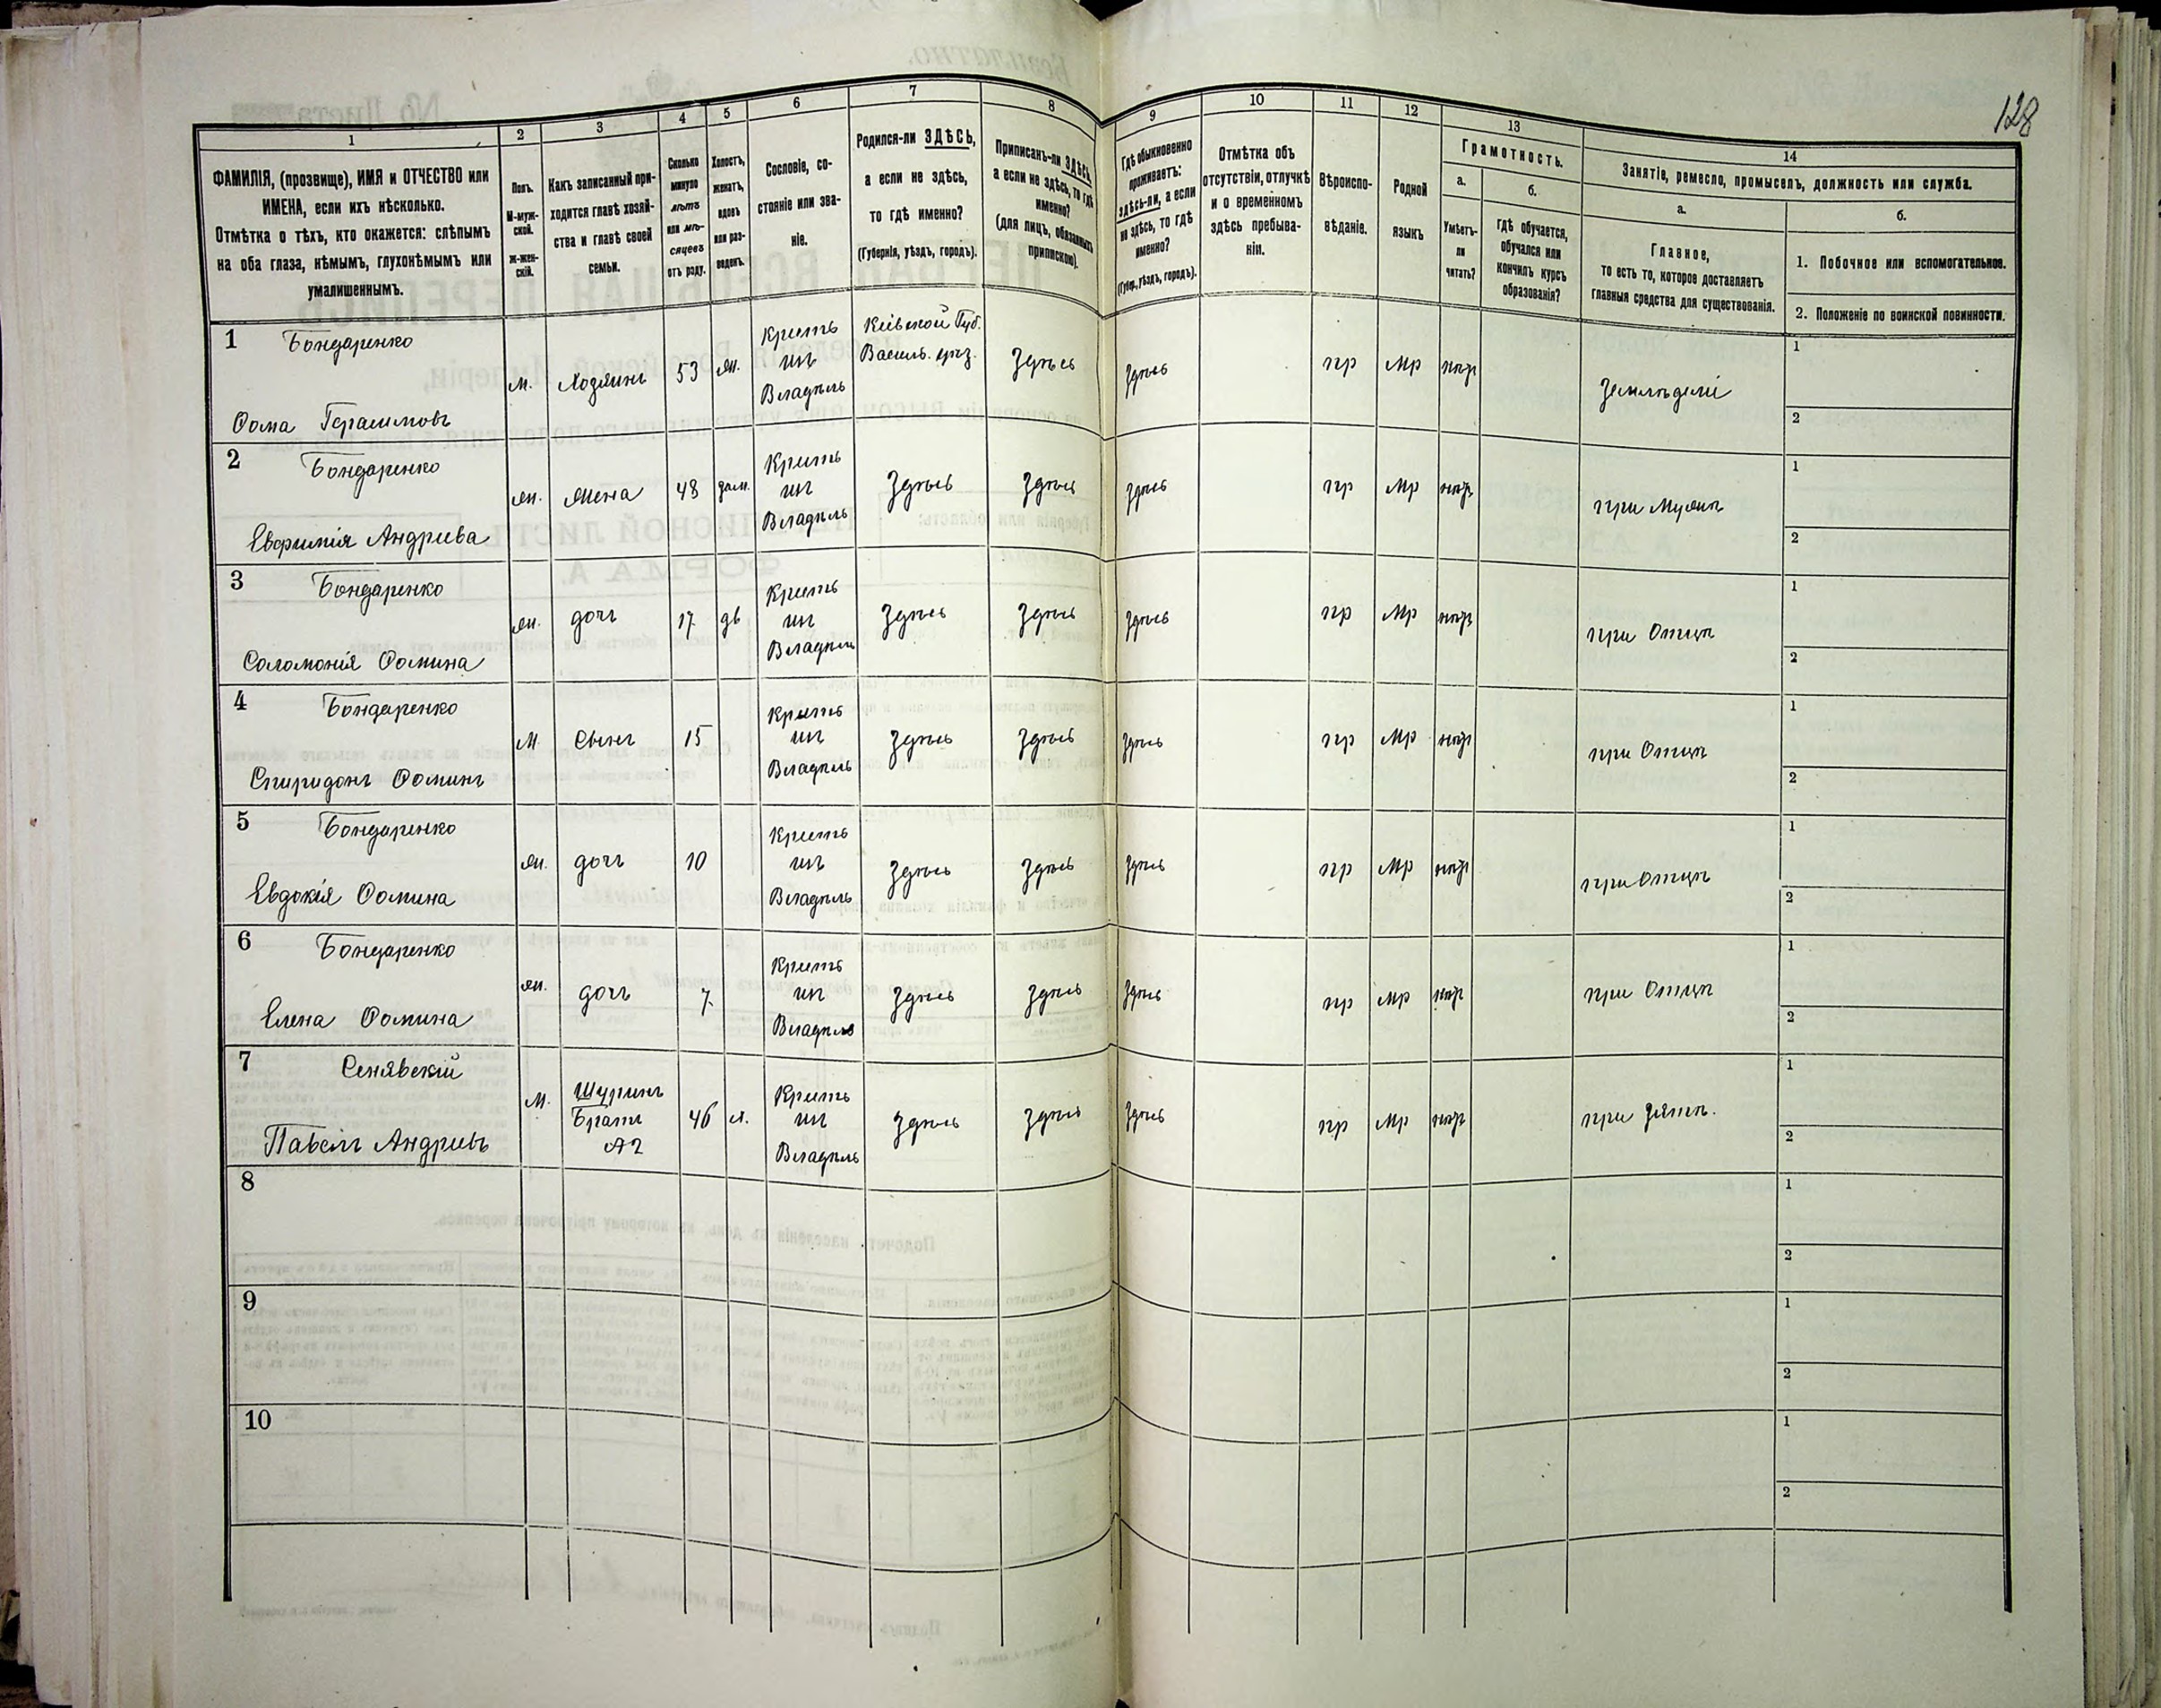 128
1
ФАМИЛІЯ, (прозвище), ИМЯ и ОТЧЕСТВО или
ИМЕНА, если ихъ нѣсколько.
Отмѣтка о тѣхъ, кто окажется: слѣпымъ
на оба глаза, нѣмымъ, глухонѣмымъ или
умалишеннымъ.
2
Полъ.
М-муж-
ской.
Ж-жен-
скій.
3
Какъ записанный при-
ходится главѣ хозяй-
ства и главѣ своей
семьи.
4
Сколько
минуло
лѣтъ
или мѣ-
сяцевъ
отъ роду.
5
Холостъ,
женатъ,
вдовъ
или раз-
веденъ.
6
Сословіе, со-
стояніе или зва-
ніе.
7
Родился-ли ЗДѢСЬ,
а если не здѣсь,
то гдѣ именно?
(Губернія, уѣздъ, городъ).
8
Приписанъ-ли ЗДѢСЬ,
а если не здѣсь, то гдѣ
именно?
(для лицъ, обязанныхъ
припискою).
9
Гдѣ обыкновенно
проживаетъ:
здѣсь-ли, а если
не здѣсь, то гдѣ
именно?
(Губер., уѣздъ, городъ).
10
Отмѣтка объ
отсутствіи, отлучкѣ
и о временномъ
здѣсь пребыва-
ніи.
11
Вѣроиспо-
вѣданіе.
12
Родной
языкъ
13
Грамотность.
а.
Умѣетъ-
ли
читать?
б.
Гдѣ обучается,
обучался или
кончилъ курсъ
образованія?
14
Занятіе, ремесло, промыселъ, должность или служба.
а.
Главное,
то есть то, которое доставляетъ
главныя средства для существованія.
б.
1. Побочное или вспомогательное.
2. Положеніе по воинской повинности.
1
Бондаренко
Ѳома Герасимовъ
м.
Хозяинъ
53
ж.
Крстъ
изъ
Владѣль
Кіевской Губ.
Василь. уѣз.
Здѣсь
Здѣсь
пр
Мр
нѣтъ
Земледелі
1
2
2
Бондаренко
Евфимія Андріева
ж.
Жена
48
зам.
Крстъ
изъ
Владѣль
Здѣсь
Здѣсь
Здѣсь
пр
Мр
нѣтъ
при Мужѣ
1
2
3
Бондаренко
Соломонія Ѳомина
ж.
дочь
17
дв
Крстъ
изъ
Владѣль
Здѣсь
Здѣсь
Здѣсь
пр
Мр
нѣтъ
при Отцѣ
1
2
4
Бондаренко
Спиридонъ Ѳоминъ
М
Сынъ
15
Крстъ
изъ
Владѣль
Здѣсь
Здѣсь
Здѣсь
пр
Мр
нѣтъ
при Отцѣ
1
2
5
Бондаренко
Евдокія Ѳомина
ж.
дочь
10
Крстъ
изъ
Владѣль
Здѣсь
Здѣсь
Здѣсь
пр
Мр
нѣтъ
при Отцѣ
1
2
6
Бондаренко
Елена Ѳомина
ж.
дочь
7
Крстъ
изъ
Владѣль
Здѣсь
Здѣсь
Здѣсь
пр
Мр
нѣтъ
при Отцѣ
1
2
7
Сенявскій
Павелъ Андріевъ
М.
Шуринъ
Братъ
Ж2
46
х.
Крстъ
изъ
Владѣль
Здѣсь
Здѣсь
Здѣсь
пр
Мр
нѣтъ
при Зятѣ.
1
2
8
1
2
9
1
2
10
1
2